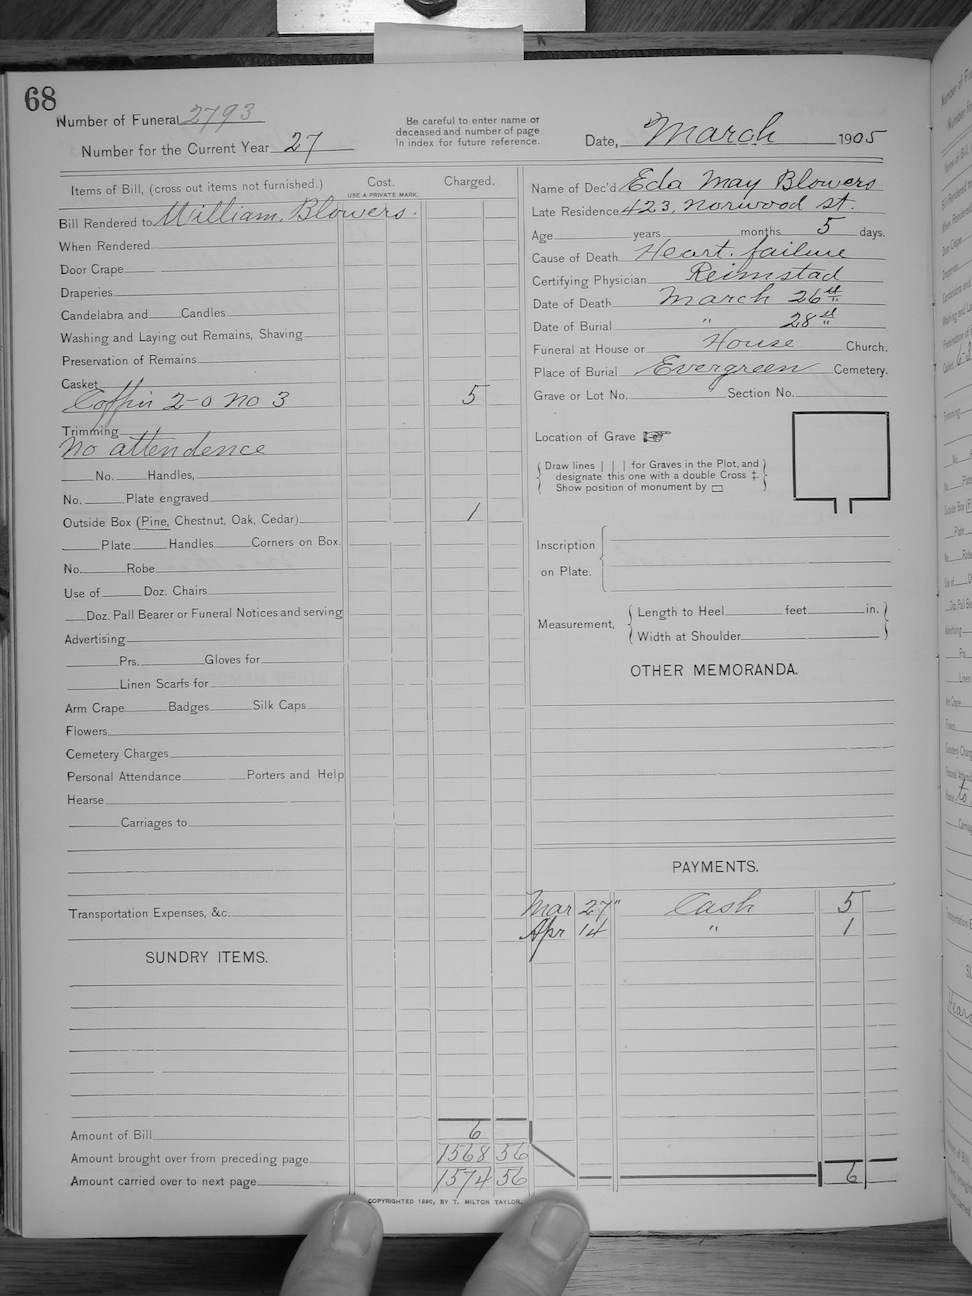 68
Number of Funeral 2793
Number for the Current Year 27
Be careful to enter name of
deceased and number of page
in index for future reference.
Date, March 1905
Items of Bill, (cross out items not furnished.)
Cost.
USE A PRIVATE MARK.
Charged.
Bill Rendered to William Blowers.
When Rendered
Door Crape
Draperies
Candelabra and Candles
Washing and Laying out Remains, Shaving
Preservation of Remains
Casket
Coffin 2-0 no 3 5
Trimming
No attendence
No. Handles,
No. Plate engraved
Outside Box (Pine, Chestnut, Oak, Cedar) 1
Plate Handles Corners on Box.
No. Robe
Use of Doz. Chairs
Doz. Pall Bearer or Funeral Notices and serving
Advertising
Prs. Gloves for
Linen Scarfs for
Arm Crape Badges Silk Caps
Flowers
Cemetery Charges
Personal Attendance Porters and Help
Hearse
Carriages to
Transportation Expenses, &c.
SUNDRY ITEMS.
Amount of Bill 6
Amount brought over from preceding page 1568 56
Amount carried over to next page 1574 56
Name of Dec'd Eda May Blowers
Late Residence 423, Norwood st.
Age years months 5 days.
Cause of Death Heart. failure
Certifying Physician Reimstad
Date of Death March 26th
Date of Burial " 28th
Funeral at House or House Church.
Place of Burial Evergreen Cemetery.
Grave or Lot No. Section No.
Location of Grave ☞
Draw lines | | | for Graves in the Plot, and
designate this one with a double Cross ‡.
Show position of monument by ▭
Inscription
on Plate.
Measurement,
Length to Heel feet in.
Width at Shoulder
OTHER MEMORANDA.
PAYMENTS.
Mar 27" Cash 5
Apr 14 " 1
6
COPYRIGHTED 1890, BY T. MILTON TAYLOR,